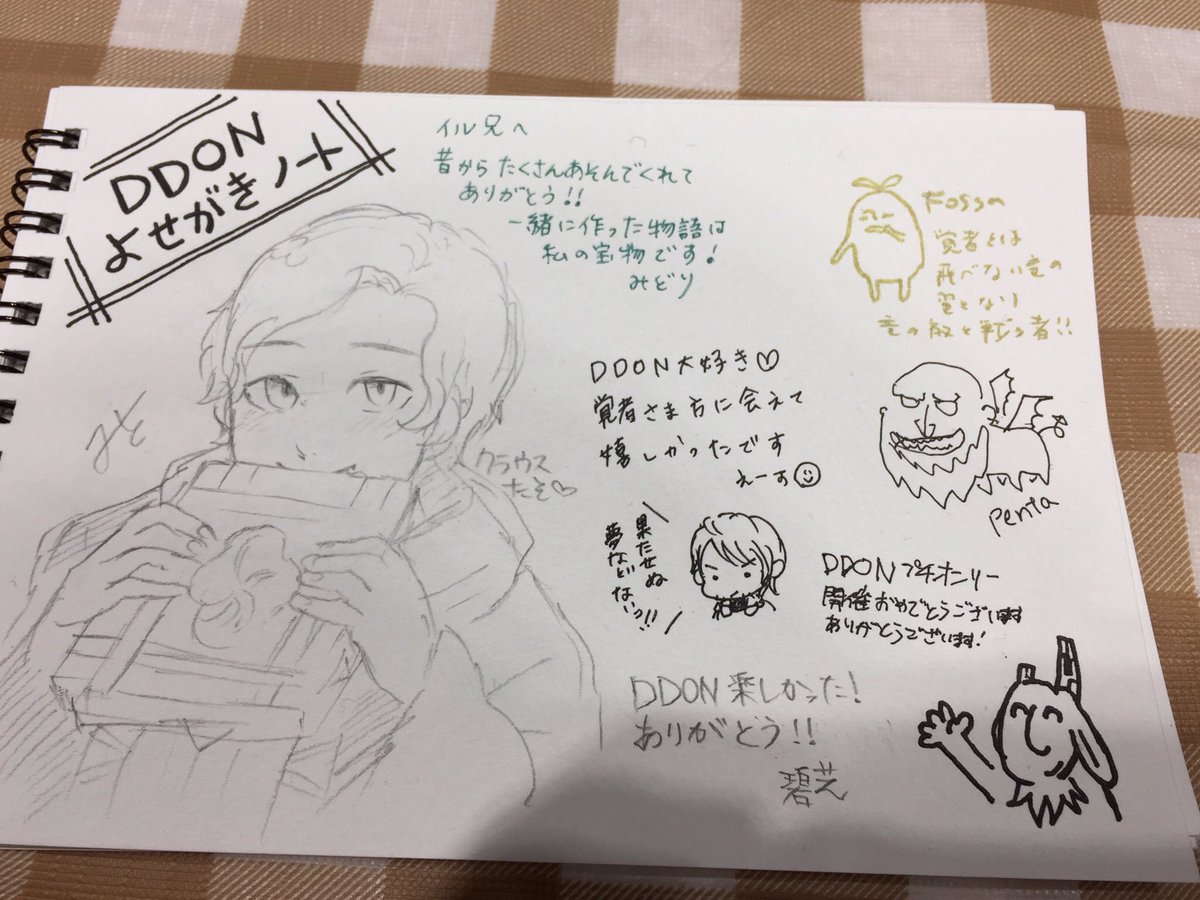 DDON
よせがきノート
イル兄へ
昔から たくさんあそんでくれて
ありがとう!!
一緒に作った物語は
私の宝物です!
みどり
FOSSの
覚者とは
飛べない竜の
翼となり
竜の敵と戦う者!!
DDON大好き♡
覚者さま方に会えて
嬉しかったです
えーす☺
クラウス
たそ♡
penta
果たせぬ
夢などないっ!!
DDONプチオンリー
開催おめでとうございます
ありがとうございます!
DDON 楽しかった!
ありがとう!!